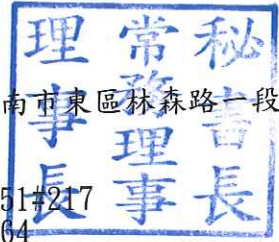 秘書長
常務理事
理事長
南市東區林森路一段
51#217
64